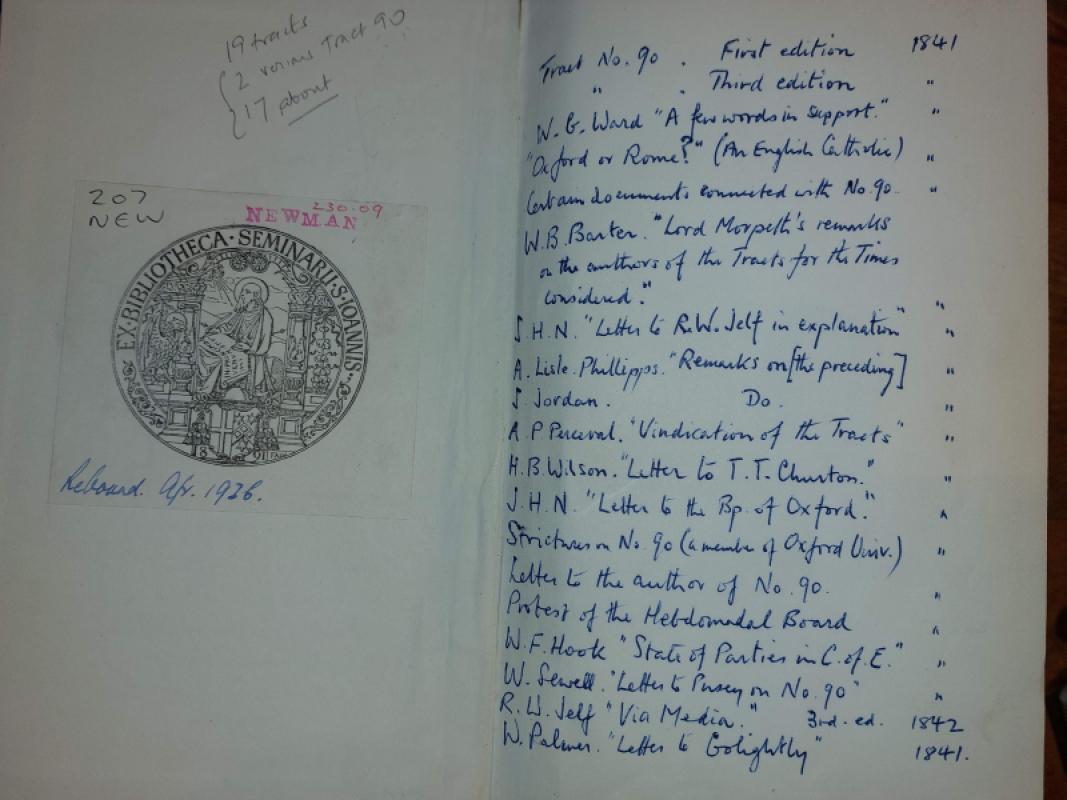 19 tracts
2 versions Tract 90
17 about
207
NEW
230.09
NEWMAN
EX·BIBLIOTHECA·SEMINARII·S·IOANNIS·
18 91
Rebound. Apr. 1936.
Tract No. 90 . First edition 1841
" . Third edition "
W. G. Ward "A few words in support." "
"Oxford or Rome?" (An English Catholic) "
Certain documents connected with No. 90. "
W. B. Barter. "Lord Morpeth's remarks
on the authors of the Tracts for the Times
considered." "
J. H. N. "Letter to R. W. Jelf in explanation" "
A. Lisle. Phillipps. "Remarks on [the preceding] "
J. Jordan. Do. "
A. P. Perceval. "Vindication of the Tracts" "
H. B. Wilson. "Letter to T. T. Churton." "
J. H. N. "Letter to the Bp. of Oxford." "
Strictures on No. 90 (a member of Oxford Univ.) "
Letter to the author of No. 90. "
Protest of the Hebdomadal Board "
W. F. Hook "State of Parties in C. of. E." "
W. Sewell. "Letter to Pusey on No. 90" "
R. W. Jelf "Via Media." 3rd. ed. 1842
W. Palmer. "Letter to Golightly" 1841.